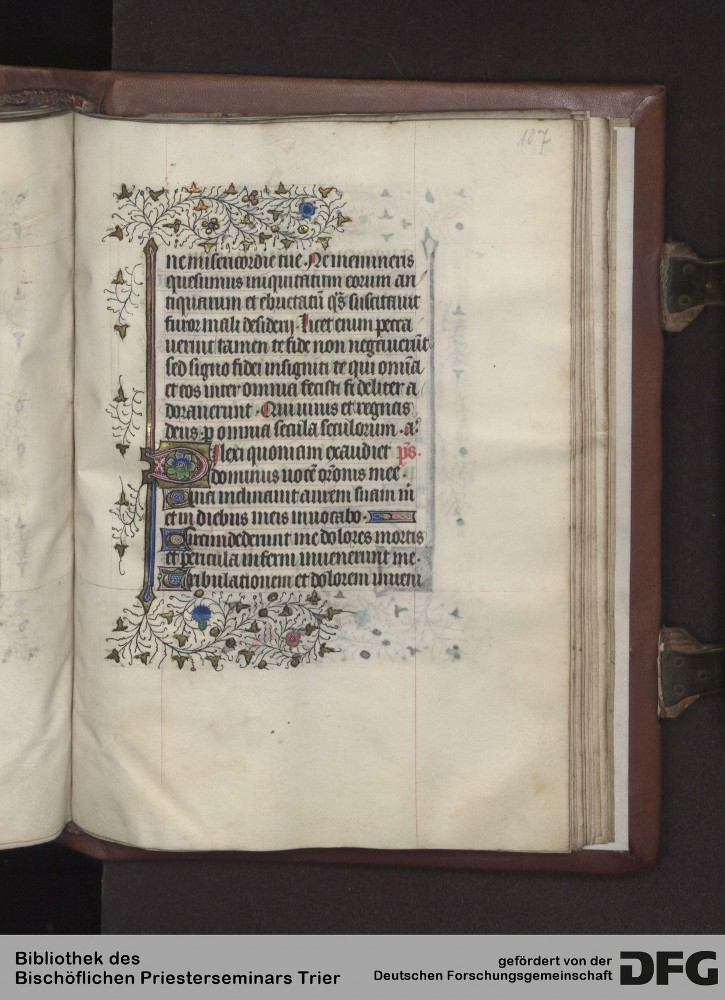 107
ne misericordie tue. Ne memineris
quesumus iniquitatum eorum an
tiquarum et ebrietatū qs̄ suscitauit
furor mali desiderij. licet enim pecca
uerint tamen te fide non negauerūt
sed signo fidei insigniti te qui omīa
et eos inter omnia fecisti fideliter a
dorauerunt. Qui uiuis et regnas
deus. p omnia secula seculorum. a.
Dilexi quoniam exaudiet ps.
dominus uocē orōnis mee.
Quia inclinauit aurem suam m̄
et in diebus meis inuocabo.
Circumdederunt me dolores mortis
et pericula inferni inuenerunt me.
Tribulationem et dolorem inueni
Bibliothek des
Bischöflichen Priesterseminars Trier
gefördert von der
Deutschen Forschungsgemeinschaft
DFG